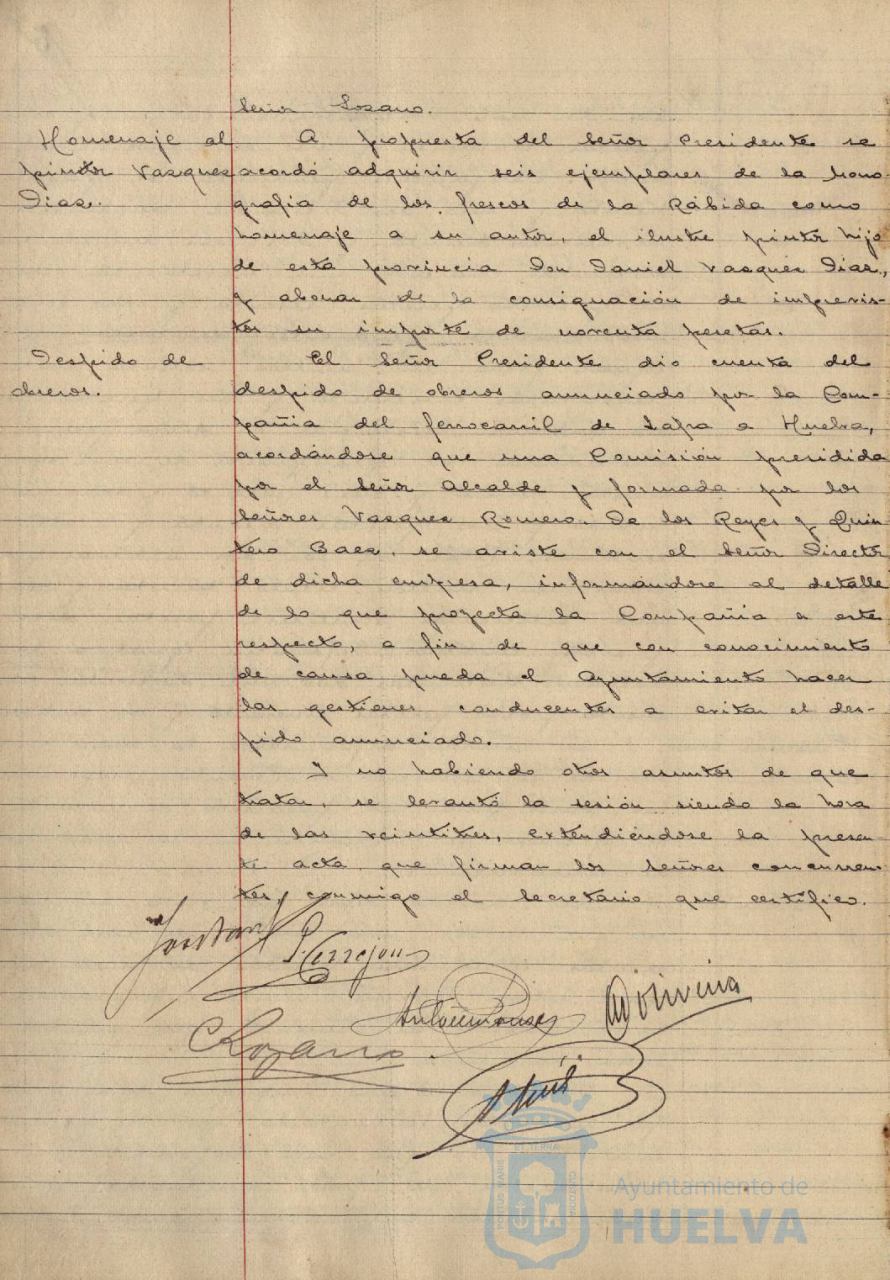 Señor Lozano.
Homenaje al
pintor Vazquez
Diaz.
A propuesta del Señor Presidente se
acordó adquirir seis ejemplares de la mono-
grafia de los frescos de la Rábida como
homenaje a su autor, el ilustre pintor hijo
de esta provincia Don Daniel Vazquez Diaz,
y abonar de la consignación de imprevis-
tos su importe de noventa pesetas.
Despido de
obreros.
El Señor Presidente dio cuenta del
despido de obreros anunciado por la Com-
pañia del ferrocarril de Zafra a Huelva,
acordándose que una Comisión presidida
por el Señor Alcalde y formada por los
Señores Vazquez Romero, De los Reyes y Quin-
tero Baez, se aviste con el Señor Director
de dicha empresa, informándose al detalle
de lo que proyecta la Compañia a este
respecto, a fin de que con conocimiento
de causa pueda el Ayuntamiento hacer
las gestiones conducentes a evitar el des-
pido anunciado.
Y no habiendo otros asuntos de que
tratar, se levantó la sesión siendo la hora
de las veintitres, extendiéndose la presen-
te acta que firman los Señores concurren-
tes, conmigo el Secretario que certifico.
P. Cerrejon
Lozano
Ayuntamiento de
HUELVA